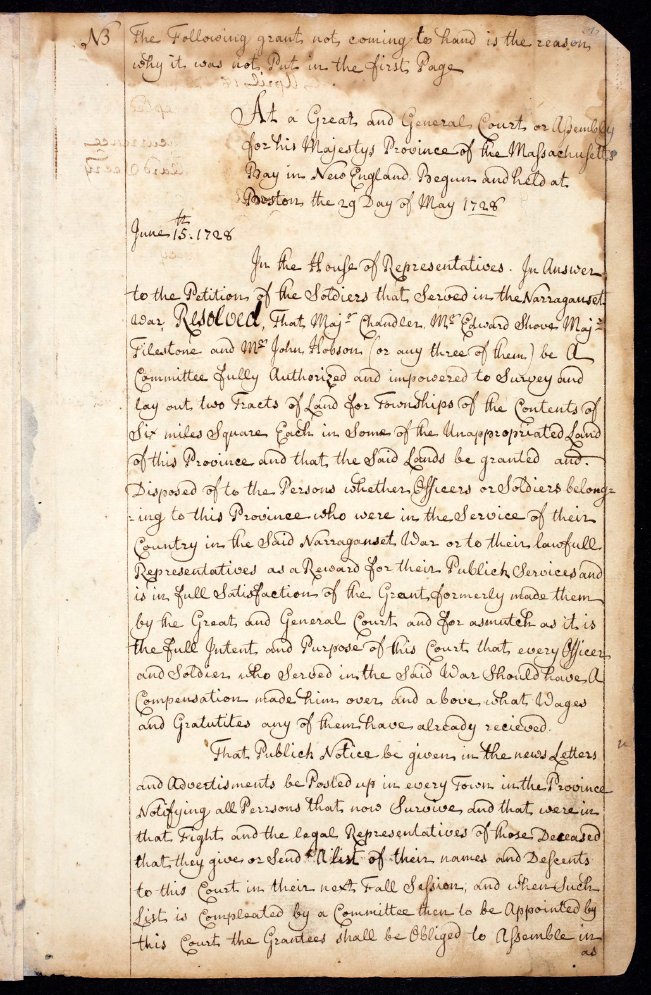 N3 The Following grant not coming to hand is the reason
why it was not Put in the first Page
At a Great and General Court or Assembly
for his Majestys Province of the Massachusetts
Bay in New England Begun and held at
Boston the 29 Day of May 1728
June 15th. 1728
In the House of Representatives. In Answer
to the Petition of the Soldiers that Served in the Narraganset
War, Resolved, That Majr. Chandler, Mr. Edward Shove, Majr.
Tilestone and Mr. John Hobson (or any three of them) be A
Committee fully Authorized and impowered to Survey and
lay out two Tracts of Land for Townships of the Contents of
Six miles Square Each in Some of the Unappropriated Land
of this Province and that the Said Lands be granted and
Disposed of to the Persons whether Officers or Soldiers belong=
=ing to this Province who were in the Service of their
Country in the Said Narraganset War or to their lawfull
Representatives as a Reward for their Publick Services and
is in full Satisfaction of the Grant formerly made them
by the Great and General Court and for asmuch as it is
the full Intent and Purpose of this Court that every Officer
and Soldier who Served in the Said War Should have A
Compensation made him over and above what Wages
and Gratutites any of them have already recieved.
That Publick Notice be given in the news Letters
and Advertisments be Posted up in every Town in the Province
Notifying all Perrsons that now Survive and that were in
that Fight and the legal Representatives of those Deceased
that they give or Send A list of their names and Descents
to this Court in their next Fall Session, and when Such
List is Compleated by a Committee then to be Appointed by
this Court the Grantees shall be Obliged to Assemble in
as